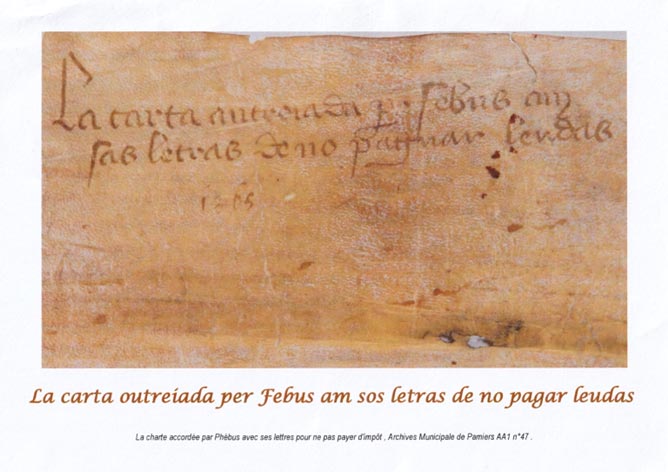 La carta autreiada per febus am
sas letras de no paguar leudas
1365
La carta outreiada per Febus am sos letras de no pagar leudas
La charte accordée par Phébus avec ses lettres pour ne pas payer d'impôt , Archives Municipale de Pamiers AA1 n°47 .